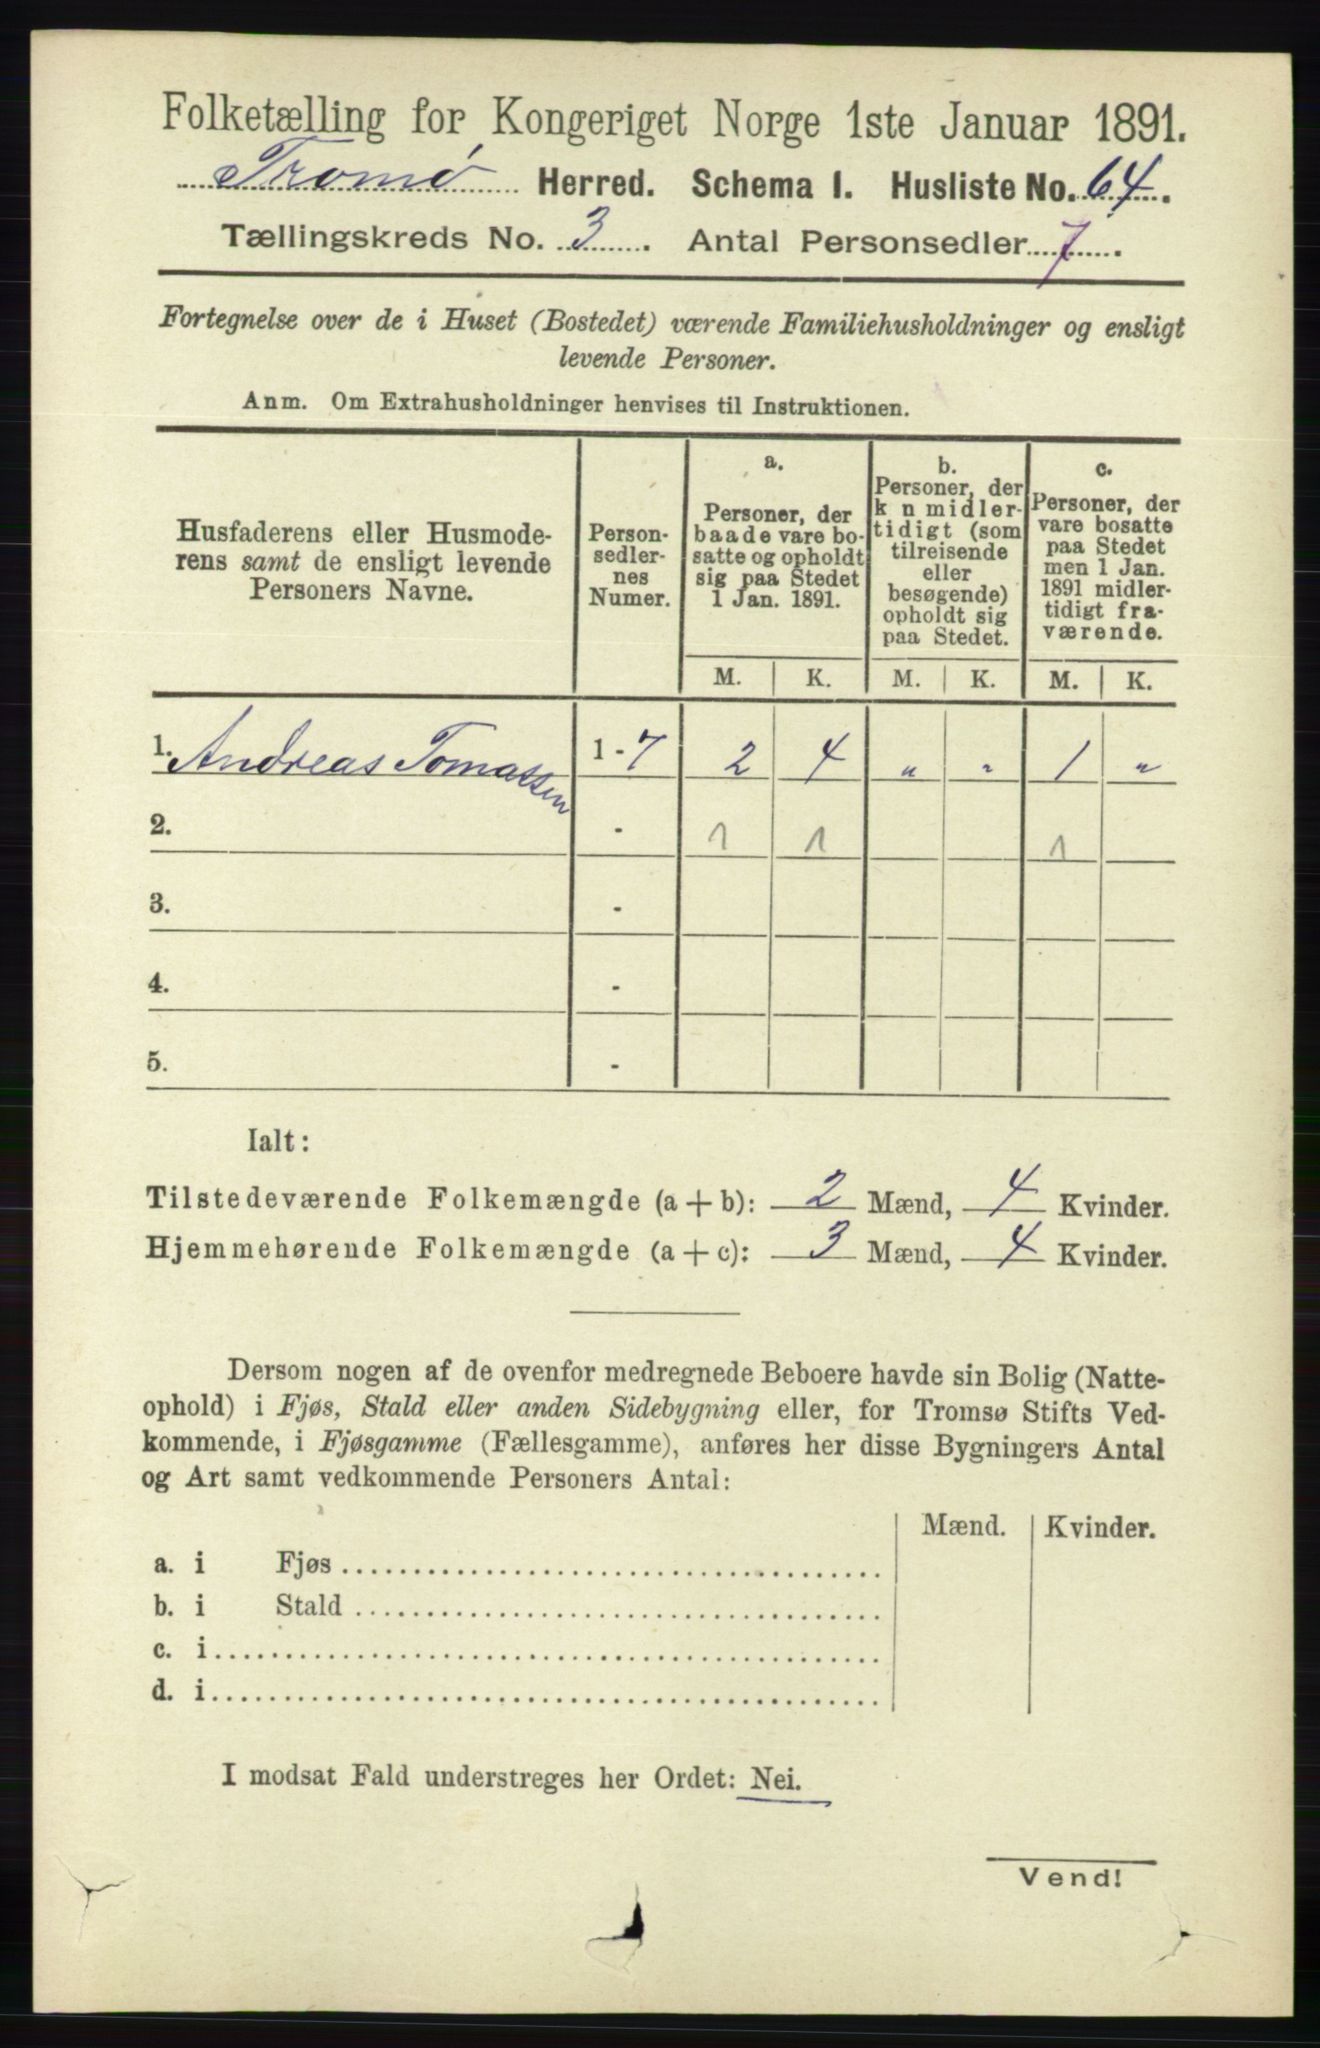 Folketælling for Kongeriget Norge 1ste Januar 1891.
Tromø Herred. Schema I. Husliste No. 64.
Tællingskreds No. 3. Antal Personsedler 7.
Fortegnelse over de i Huset (Bostedet) værende Familiehusholdninger og ensligt
levende Personer.
Anm. Om Extrahusholdninger henvises til Instruktionen.
Husfaderens eller Husmode-
rens samt de ensligt levende
Personers Navne.
Person-
sedler-
nes
Numer.
a.
Personer, der
baade vare bo-
satte og opholdt
sig paa Stedet
1 Jan. 1891.
b.
Personer, der
k n midler-
tidigt (som
tilreisende
eller
besøgende)
opholdt sig
paa Stedet.
c.
Personer, der
vare bosatte
paa Stedet
men 1 Jan.
1891 midler-
tidigt fra-
værende.
M. K. M. K. M. K.
1. Andreas Tomassen 1 - 7 2 4 „ „ 1 „
2. - 1 1 1
3. -
4. -
5. -
Ialt:
Tilstedeværende Folkemængde (a + b): 2 Mænd, 4 Kvinder.
Hjemmehørende Folkemængde (a + c): 3 Mænd, 4 Kvinder.
Dersom nogen af de ovenfor medregnede Beboere havde sin Bolig (Natte-
ophold) i Fjøs, Stald eller anden Sidebygning eller, for Tromsø Stifts Ved-
kommende, i Fjøsgamme (Fællesgamme), anføres her disse Bygningers Antal
og Art samt vedkommende Personers Antal:
Mænd. Kvinder.
a. i Fjøs
b. i Stald
c. i
d. i
I modsat Fald understreges her Ordet: Nei.
Vend!